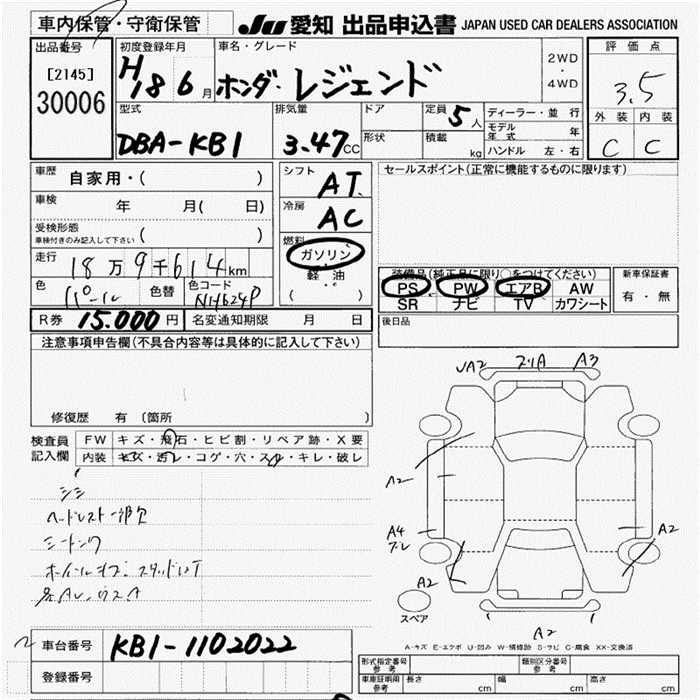 車内保管・守衛保管
JU 愛知 出品申込書 JAPAN USED CAR DEALERS ASSOCIATION
出品番号
[2145]
30006
初度登録年月
H18 6月
車名・グレード
ホンダ・レジェンド
2WD
・
4WD
評価点
3.5
外装 内装
C C
型式
DBA-KB1
排気量
3.47CC
ドア
形状
定員 5人
積載 kg
ディーラー・並行
モデル年式 年
ハンドル 左・右
車歴 自家用・( )
車検 年 月( 日)
受検形態
車検付きのみ記入して下さい ( )
走行 18万9千614km
色 パール 色替 色コード NH624P
シフト AT
冷房 AC
燃料
ガソリン
軽油
( )
セールスポイント(正常に機能するものに限ります)
装備品(純正品に限り○をつけてください)
PS PW エアB AW
SR ナビ TV カワシート
新車保証書
有・無
後日品
R券 15.000円 名変通知期限 月 日
注意事項申告欄(不具合内容等は具体的に記入して下さい)
修復歴 有 〔箇所
検査員記入欄
FW キズ・飛石・ヒビ割・リペア跡・X要
内装 キズ・汚レ・コゲ・穴・スレ・キレ・破レ
ヘッドレスト一部欠
A3
A2
A4
A2
A2
A2
スペア
A-キズ E-エクボ U-凹み W-補修跡 S-サビ C-腐食 XX-交換済
車台番号 KB1-1102022
登録番号
形式指定番号 参考
類別区分番号 参考
車庫証明用 参考 長さ cm 幅 cm 高さ cm